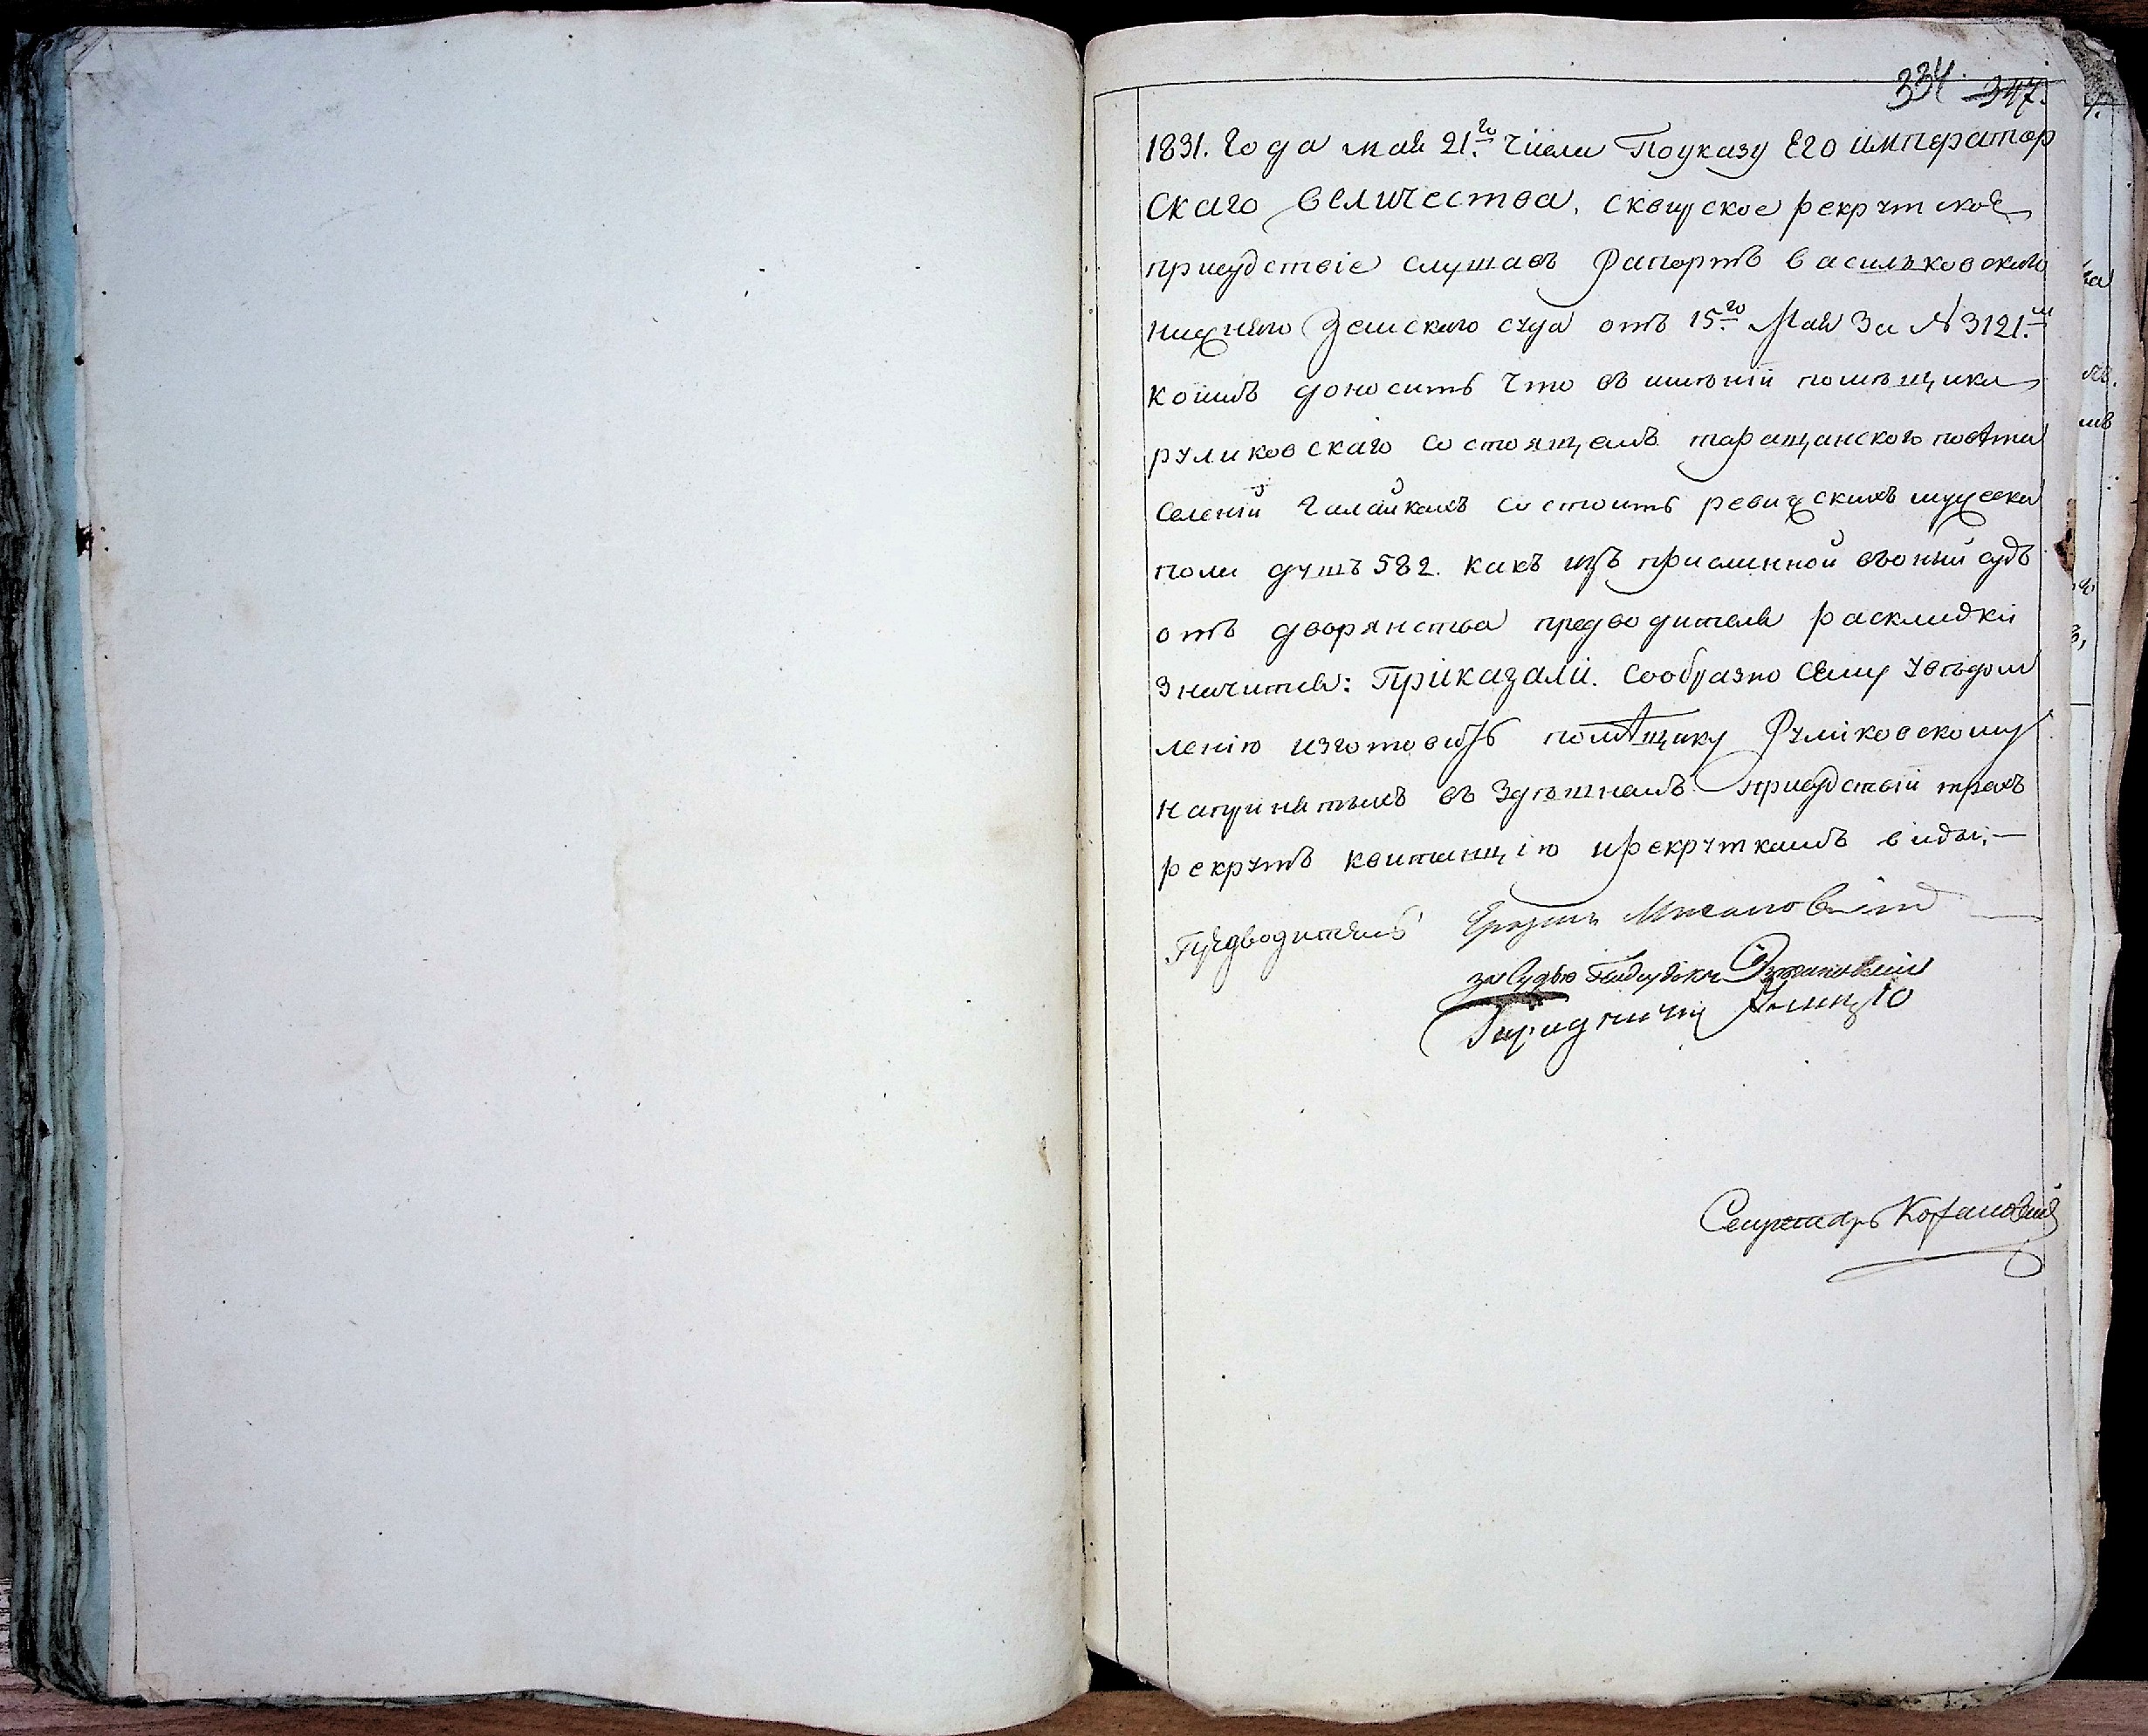 334. 347.
1831. Года мая 21.го числа По указу Его император
скаго величества, сквирское рекрутское
присудствіе слушавъ рапортъ васильковского
нижняго Земского суда отъ 15.го Мая За № 3121.м
коимъ доноситъ что въ имѣніи помѣщика
руликовскаго состоящемъ таращанского повѣта
селеніи Галайкахъ состоитъ ревизскихъ мужеска
пола душъ 582. какъ изъ присланной въ оный судъ
отъ дворянства предводителя раскладки
значится: Приказали. Сообразно сему уведом
ленію изготовить помѣщику Руликовскому
напринятыхъ въ здѣшнемъ присудствіи трехъ
рекрутъ квитанцію ирекруткамъ виды. —
Предводитель
за Судью Подсудокъ
Секретарь